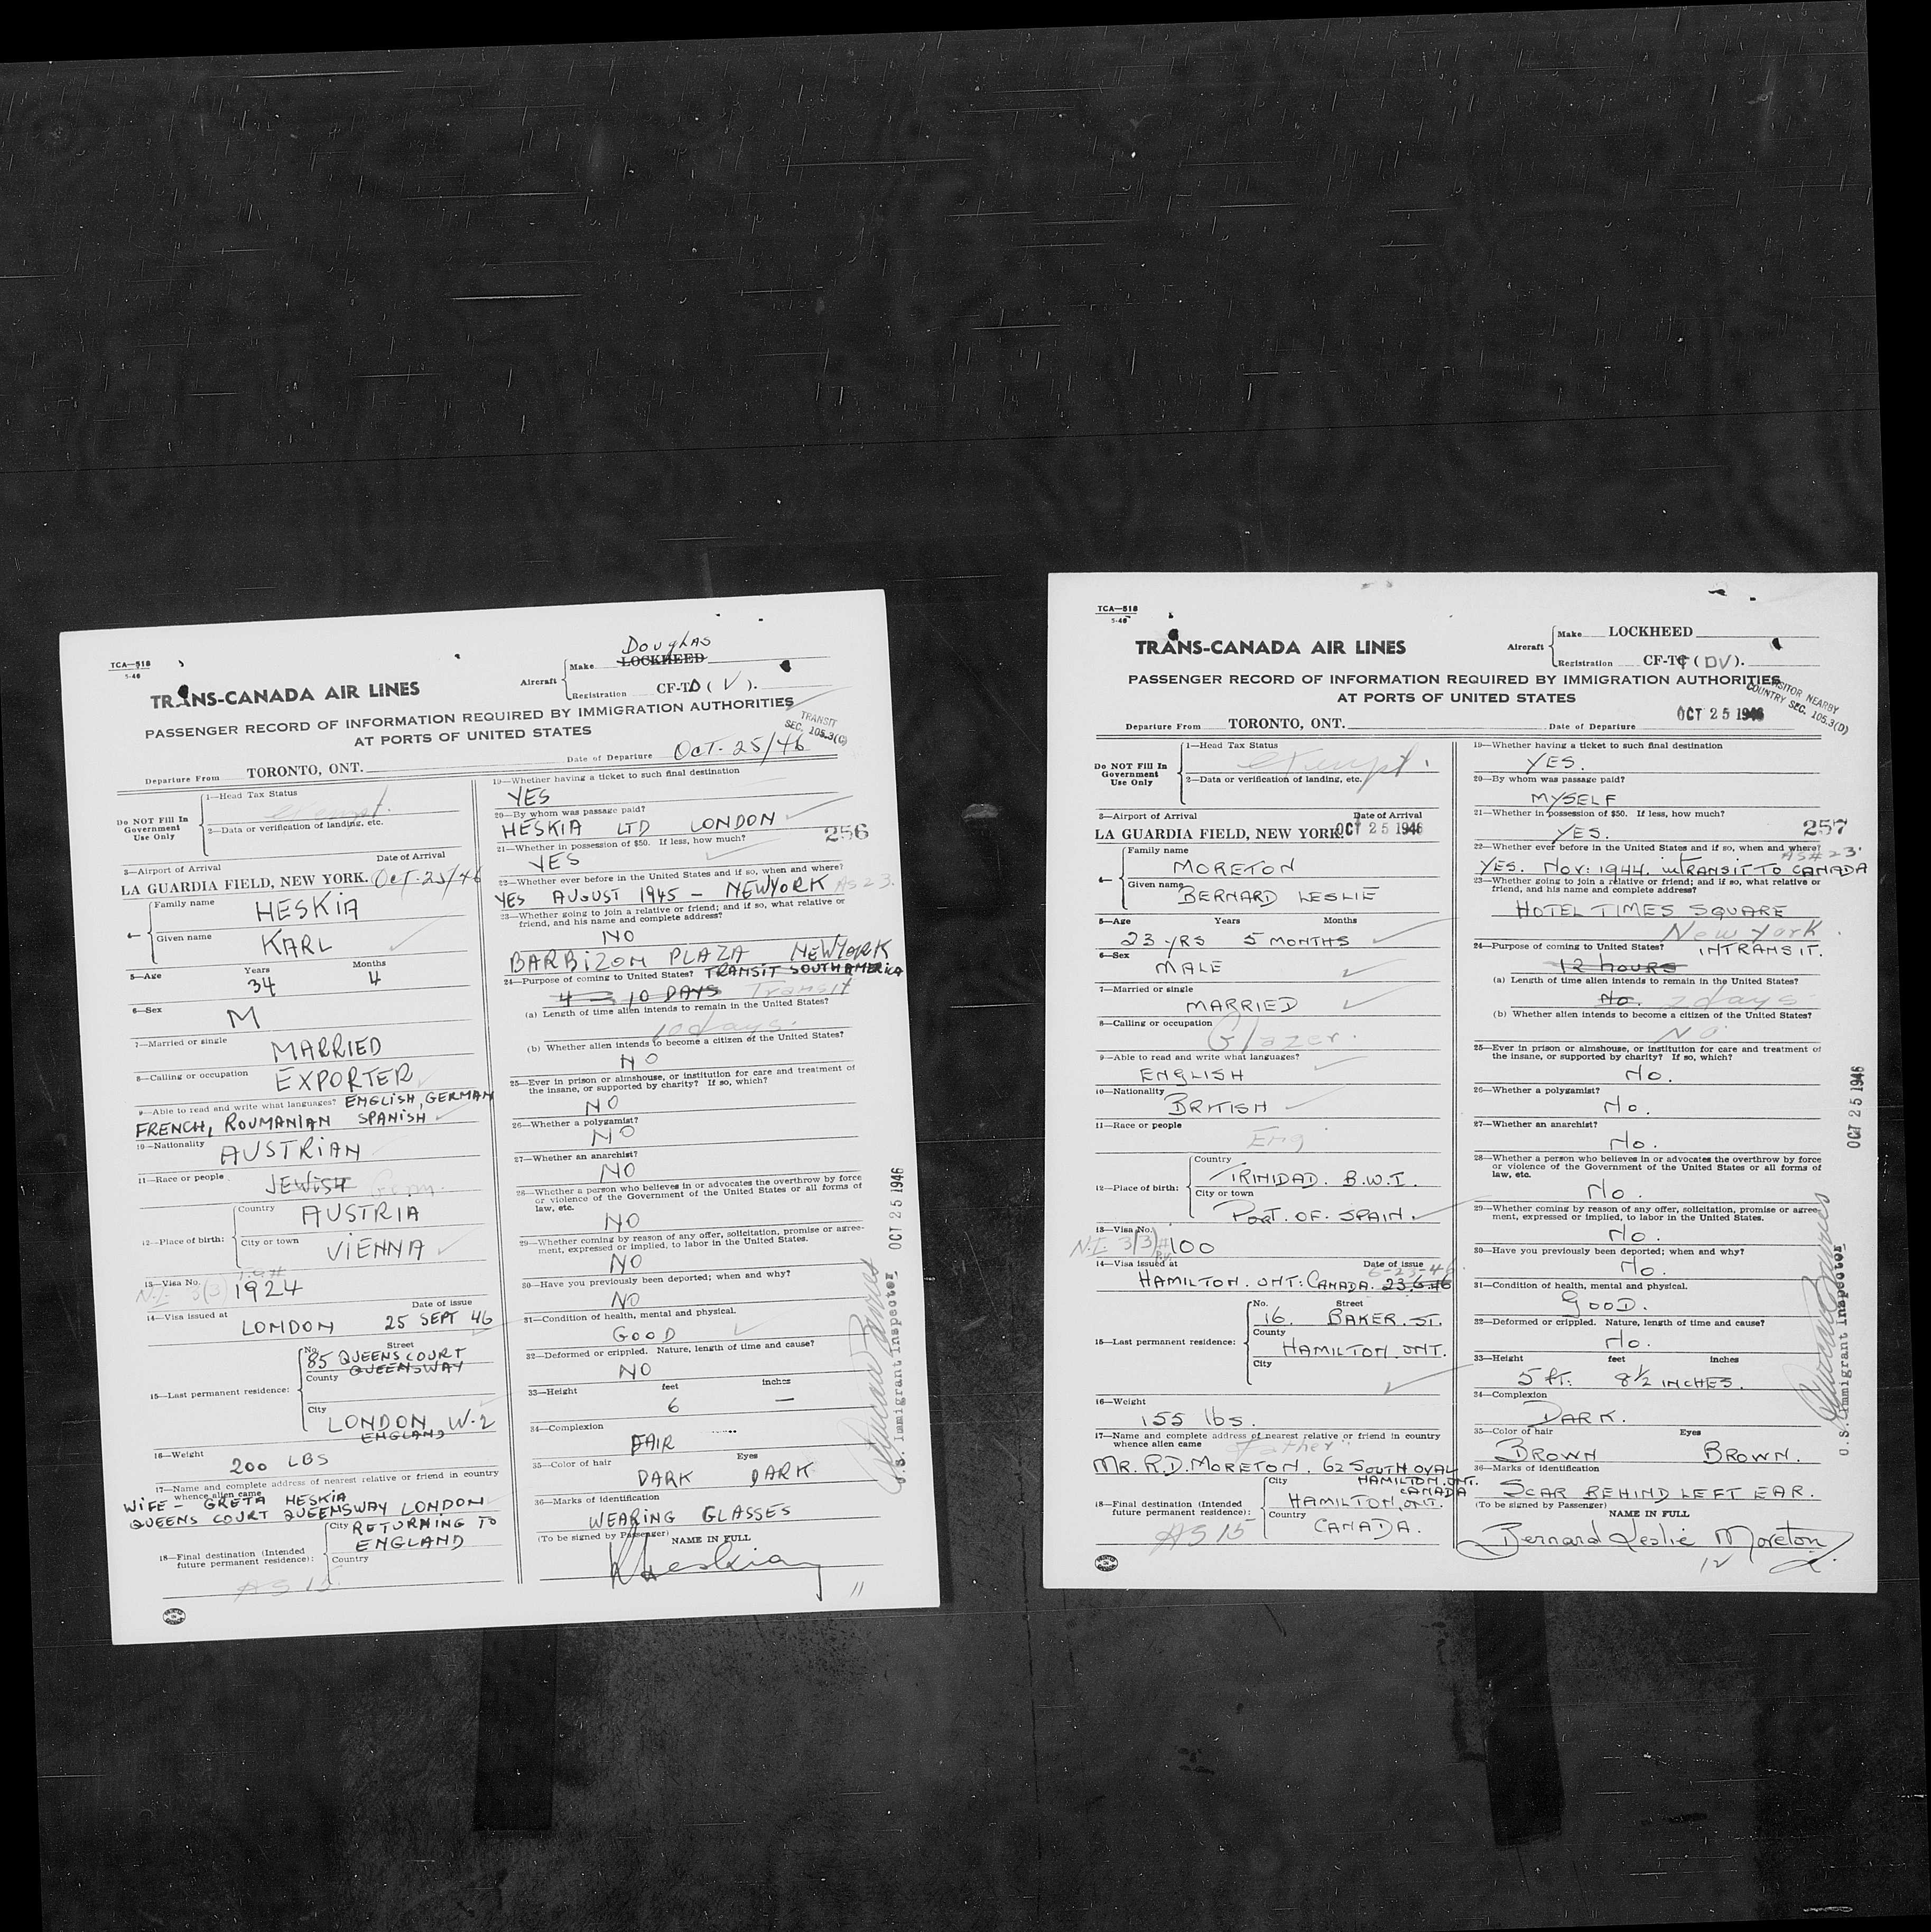 TCA—518
5-46
TRANS-CANADA AIR LINES
Aircraft
Make
Douglas
LOCKHEED
Registration CF-TD ( V ).
PASSENGER RECORD OF INFORMATION REQUIRED BY IMMIGRATION AUTHORITIES
AT PORTS OF UNITED STATES
TRANSIT
SEC. 105.3(C)
Departure From TORONTO, ONT.
Date of Departure OCT. 25/46
Do NOT Fill In
Government
Use Only
1—Head Tax Status
exempt.
2—Data or verification of landing, etc.
3—Airport of Arrival Date of Arrival
LA GUARDIA FIELD, NEW YORK. Oct. 25/46
Family name
HESKIA
Given name
KARL
5—Age Years Months
34 4
6—Sex
M
7—Married or single
MARRIED
8—Calling or occupation
EXPORTER
9—Able to read and write what languages? ENGLISH, GERMAN
FRENCH, ROUMANIAN SPANISH
10—Nationality
AUSTRIAN
11—Race or people
JEWISH Germ.
12—Place of birth:
Country
AUSTRIA
City or town
VIENNA
13—Visa No.
N.I. 3(3) 1924
14—Visa issued at Date of issue
LONDON 25 SEPT 46
15—Last permanent residence:
No. Street
85 QUEENS COURT
QUEENSWAY
County
City
LONDON W-2
ENGLAND
16—Weight
200 LBS
17—Name and complete address of nearest relative or friend in country
whence alien came
WIFE — GRETA HESKIA
QUEENS COURT QUEENSWAY LONDON
18—Final destination (Intended
future permanent residence):
City RETURNING TO
ENGLAND
Country
AS 15.
19—Whether having a ticket to such final destination
YES
20—By whom was passage paid?
HESKIA LTD LONDON
256
21—Whether in possession of $50. If less, how much?
YES
22—Whether ever before in the United States and if so, when and where?
YES AUGUST 1945 – NEWYORK AS 23.
23—Whether going to join a relative or friend; and if so, what relative or
friend, and his name and complete address?
NO
BARBIZON PLAZA NEWYORK
24—Purpose of coming to United States? TRANSIT SOUTH AMERICA
4 – 10 DAYS Transit
(a) Length of time alien intends to remain in the United States?
10 days.
(b) Whether alien intends to become a citizen of the United States?
NO
25—Ever in prison or almshouse, or institution for care and treatment of
the insane, or supported by charity? If so, which?
NO
26—Whether a polygamist?
NO
27—Whether an anarchist?
NO
28—Whether a person who believes in or advocates the overthrow by force
or violence of the Government of the United States or all forms of
law, etc.
NO
29—Whether coming by reason of any offer, solicitation, promise or agree-
ment, expressed or implied, to labor in the United States.
NO
30—Have you previously been deported; when and why?
NO
31—Condition of health, mental and physical.
GOOD
32—Deformed or crippled. Nature, length of time and cause?
NO
33—Height feet inches
6 —
34—Complexion
FAIR
35—Color of hair Eyes
DARK DARK
36—Marks of identification
WEARING GLASSES
(To be signed by Passenger) NAME IN FULL
KHeskia
11
U.S. Immigrant Inspector OCT 25 1946
TCA—518
5-46
TRANS-CANADA AIR LINES
Aircraft
Make LOCKHEED
Registration CF-TC ( DV ).
PASSENGER RECORD OF INFORMATION REQUIRED BY IMMIGRATION AUTHORITIES
AT PORTS OF UNITED STATES
VISITOR NEARBY
COUNTRY SEC. 105.3(D)
Departure From TORONTO, ONT.
Date of Departure OCT 25 1946
Do NOT Fill In
Government
Use Only
1—Head Tax Status
exempt.
2—Data or verification of landing, etc.
3—Airport of Arrival Date of Arrival
LA GUARDIA FIELD, NEW YORK. OCT 25 1946
Family name
MORETON
Given name
BERNARD LESLIE
5—Age Years Months
23 YRS 5 MONTHS
6—Sex
MALE
7—Married or single
MARRIED
8—Calling or occupation
Glazer.
9—Able to read and write what languages?
ENGLISH
10—Nationality
BRITISH
11—Race or people
Eng
12—Place of birth:
Country
TRINIDAD. B.W.I.
City or town
PORT. OF. SPAIN.
13—Visa No.
N.I. 3(3) #100
14—Visa issued at Date of issue
6-23-46
HAMILTON. ONT: CANADA. 23.6.46
15—Last permanent residence:
No. Street
16. BAKER. ST.
County
HAMILTON. ONT.
City
16—Weight
155 lbs.
17—Name and complete address of nearest relative or friend in country
whence alien came "Father"
MR. R.D. MORETON. 62 SOUTH OVAL
HAMILTON. ONT.
CANADA
18—Final destination (Intended
future permanent residence):
City
HAMILTON, ONT.
Country
CANADA.
AS 15
19—Whether having a ticket to such final destination
YES.
20—By whom was passage paid?
MYSELF
21—Whether in possession of $50. If less, how much?
YES.
257
22—Whether ever before in the United States and if so, when and where?
AS# 23.
YES. NOV: 1944. in TRANSIT TO CANADA
23—Whether going to join a relative or friend; and if so, what relative or
friend, and his name and complete address?
HOTEL TIMES SQUARE
New York.
24—Purpose of coming to United States? INTRANSIT.
12 hours
(a) Length of time alien intends to remain in the United States?
No. 2 days
(b) Whether alien intends to become a citizen of the United States?
No
25—Ever in prison or almshouse, or institution for care and treatment of
the insane, or supported by charity? If so, which?
No.
26—Whether a polygamist?
No.
27—Whether an anarchist?
No.
28—Whether a person who believes in or advocates the overthrow by force
or violence of the Government of the United States or all forms of
law, etc.
No.
29—Whether coming by reason of any offer, solicitation, promise or agree-
ment, expressed or implied, to labor in the United States.
No.
30—Have you previously been deported; when and why?
No.
31—Condition of health, mental and physical.
GOOD.
32—Deformed or crippled. Nature, length of time and cause?
No.
33—Height feet inches
5 ft. 8½ INCHES.
34—Complexion
DARK.
35—Color of hair Eyes
BROWN BROWN.
36—Marks of identification
SCAR BEHIND LEFT EAR.
(To be signed by Passenger)
NAME IN FULL
Bernard Leslie Moreton
12
U.S. Immigrant Inspector OCT 25 1946